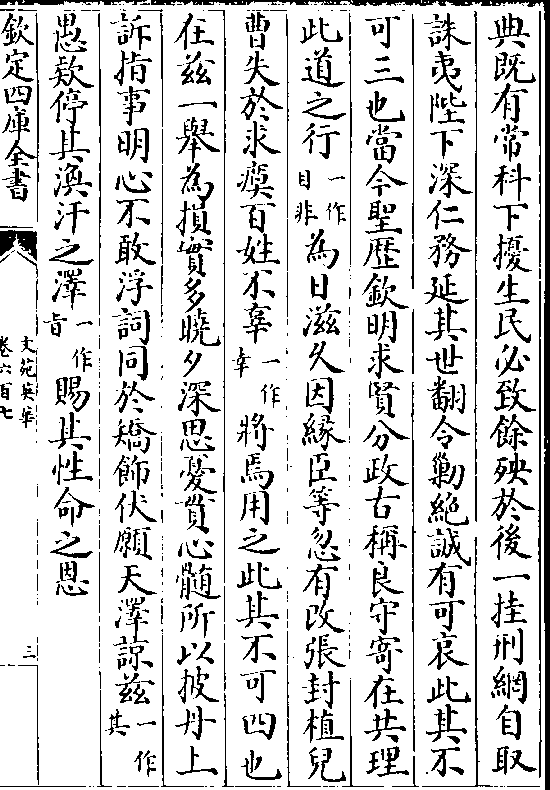 典既有常科下擾生民必致餘殃於後一挂刑網自取
誅夷陛下深仁務延其世翻令勦絶誠有可哀此其不
可三也當今聖歴欽明求賢分政古稱良守寄在共理
此道之行一作目非為日滋久因緣臣等忽有改張封植兒
曹失於求瘼百姓不辜一作幸將焉用之此其不可四也
在兹一舉為損實多曉夕深思憂貫心髓所以披丹上
訴指事明心不敢浮詞同於矯飾伏願天澤諒兹一作其
愚欵停其渙汗之澤一作旨賜其性命之恩
欽定四庫全書
文苑英華
卷六百七
三